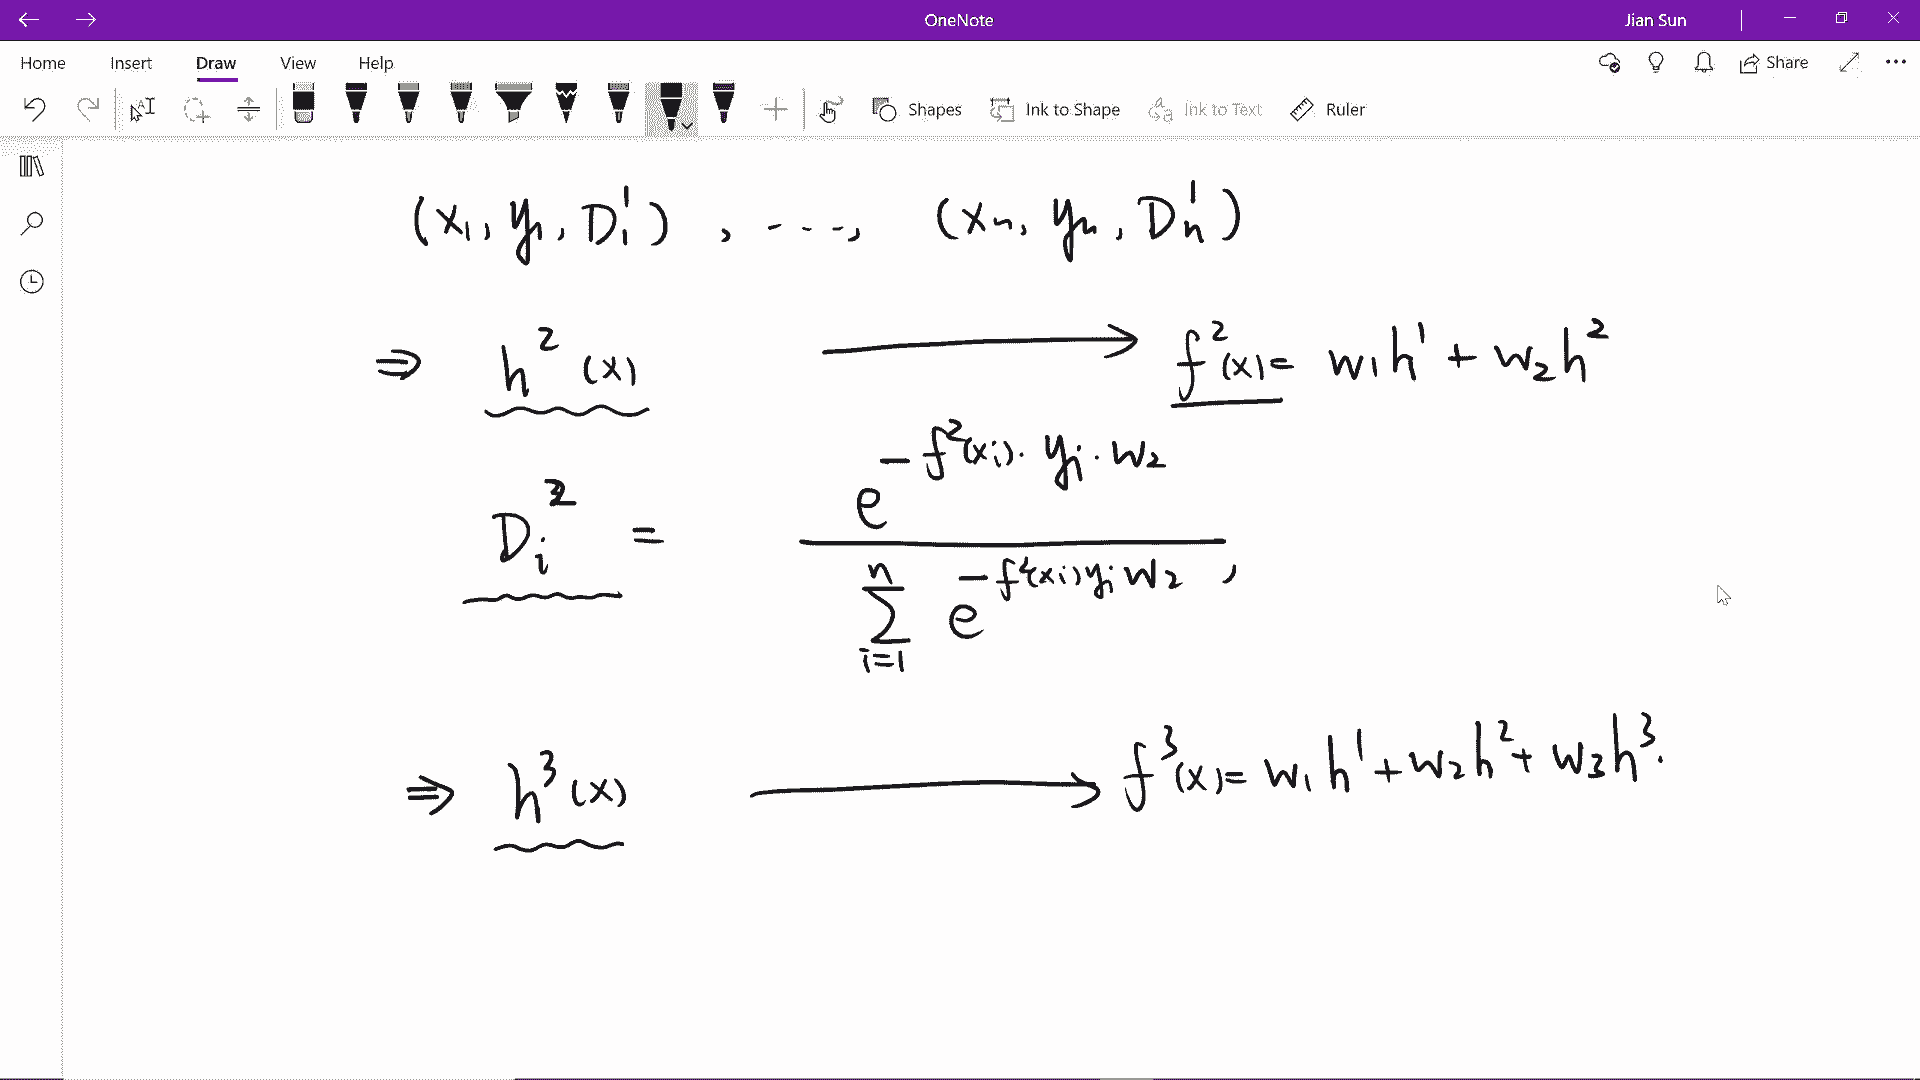 OneNote
Jian Sun
Home Insert Draw View Help
Share
Shapes Ink to Shape Ink to Text Ruler
(x₁, y₁, D₁¹), ---, (xₙ, yₙ, Dₙ¹)
⇒ h²(x) ⟶ f²(x) = w₁h¹ + w₂h²
Dᵢ² = e^(-f²(xᵢ)·yᵢ·w₂) / ∑_{i=1}^{n} e^(-f²(xᵢ)yᵢw₂),
⇒ h³(x) ⟶ f³(x) = w₁h¹ + w₂h² + w₃h³.